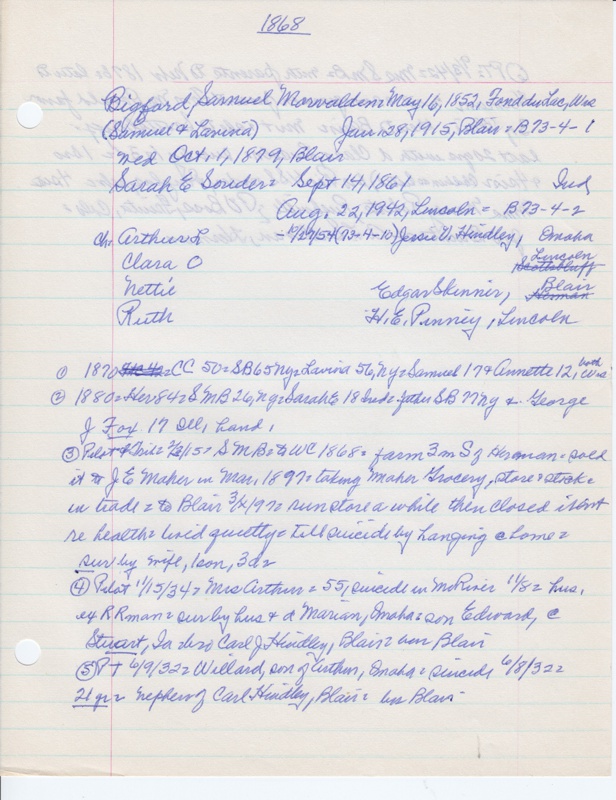 1868
Bigford, Samuel Morvalden = May 16, 1852, Fond du Lac, Wis
(Samuel & Lavina) Jan. 28, 1915, Blair = B73-4-1
med Oct. 1, 1879, Blair
Sarah E Souder = Sept 14, 1861 Ind
Aug. 22, 1942, Lincoln = B.73-4-2
ch: Arthur L - 11/27/54 (73-4-10) Jessie V. Hindley, Omaha
Clara O Lincoln Scottsbluff
Nettie Edgar Skinner, Blair Herman
Ruth H.E. Penney, Lincoln
① 1870 = CC 50 = SB 65 Ny = Lavina 56, Ny = Samuel 17 & Annette 12, both Wis
② 1880 = Her 84 = SMB 26, Ny = Sarah E 18 Ind = father SB 77 Ny & George
J Fox 17 Ill, hand,
③ Pilot & Trib = 2/3/15 = SMB = to WC 1868 = farm 3 m S of Herman = sold
it to J E Maher in Mar, 1897 = taking Maher Grocery, store = stock =
in trade = to Blair 3/4/97 = run store a while then closed it out
re health = lived quietly = till suicide by hanging @ home =
sur by wife, 1 son, 3 d =
④ Pilot 11/15/34 = Mrs Arthur = 55, suicide in Mo River 11/8 = hus,
ex RRman = sur by hus & d Marian, Omaha = son Edward, @
Stuart, Ia = bro Carl J Hindley, Blair = bur Blair
⑤ PT 6/9/32 = Willard, son of Arthur, Omaha = suicide 6/8/32 =
21 yr = nephew of Carl Hindley, Blair = bur Blair